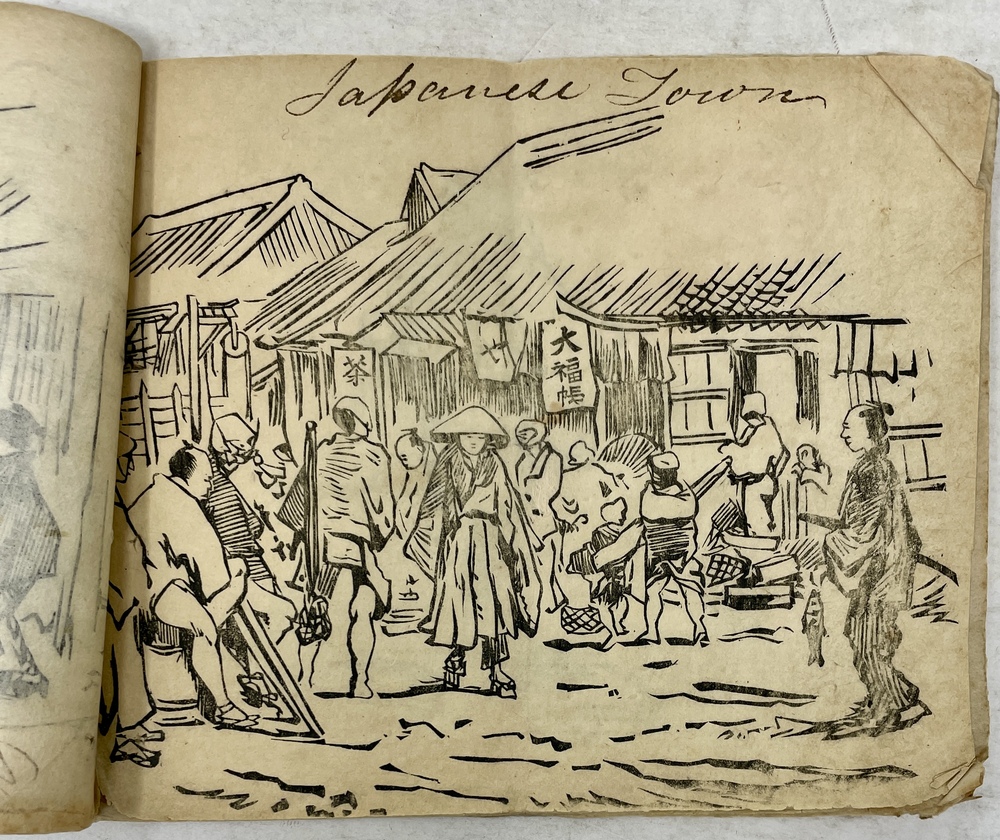 Japanese Town
茶
大福帳